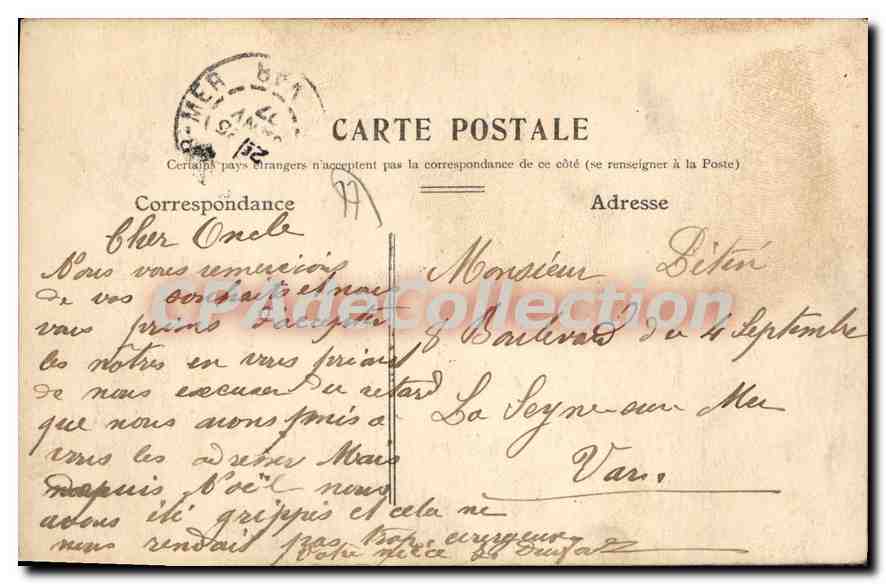 R-MER VAR
CARTE POSTALE
Certains pays étrangers n'acceptent pas la correspondance de ce côté (se renseigner à la Poste)
Correspondance
Adresse
Cher Oncle
Nous vous remercions
de vos souhaits et nous
vous prions d'accepter
les nôtres en vous priant
de nous excuser du retard
que nous avons mis a
vous les adresser Mais
depuis Noël nous
avons été grippés et cela ne
nous rendait pas trop
Votre nièce
Monsieur
8 Boulevard du 4 Septembre
La Seyne-sur Mer
Var.
CPAdeCollection